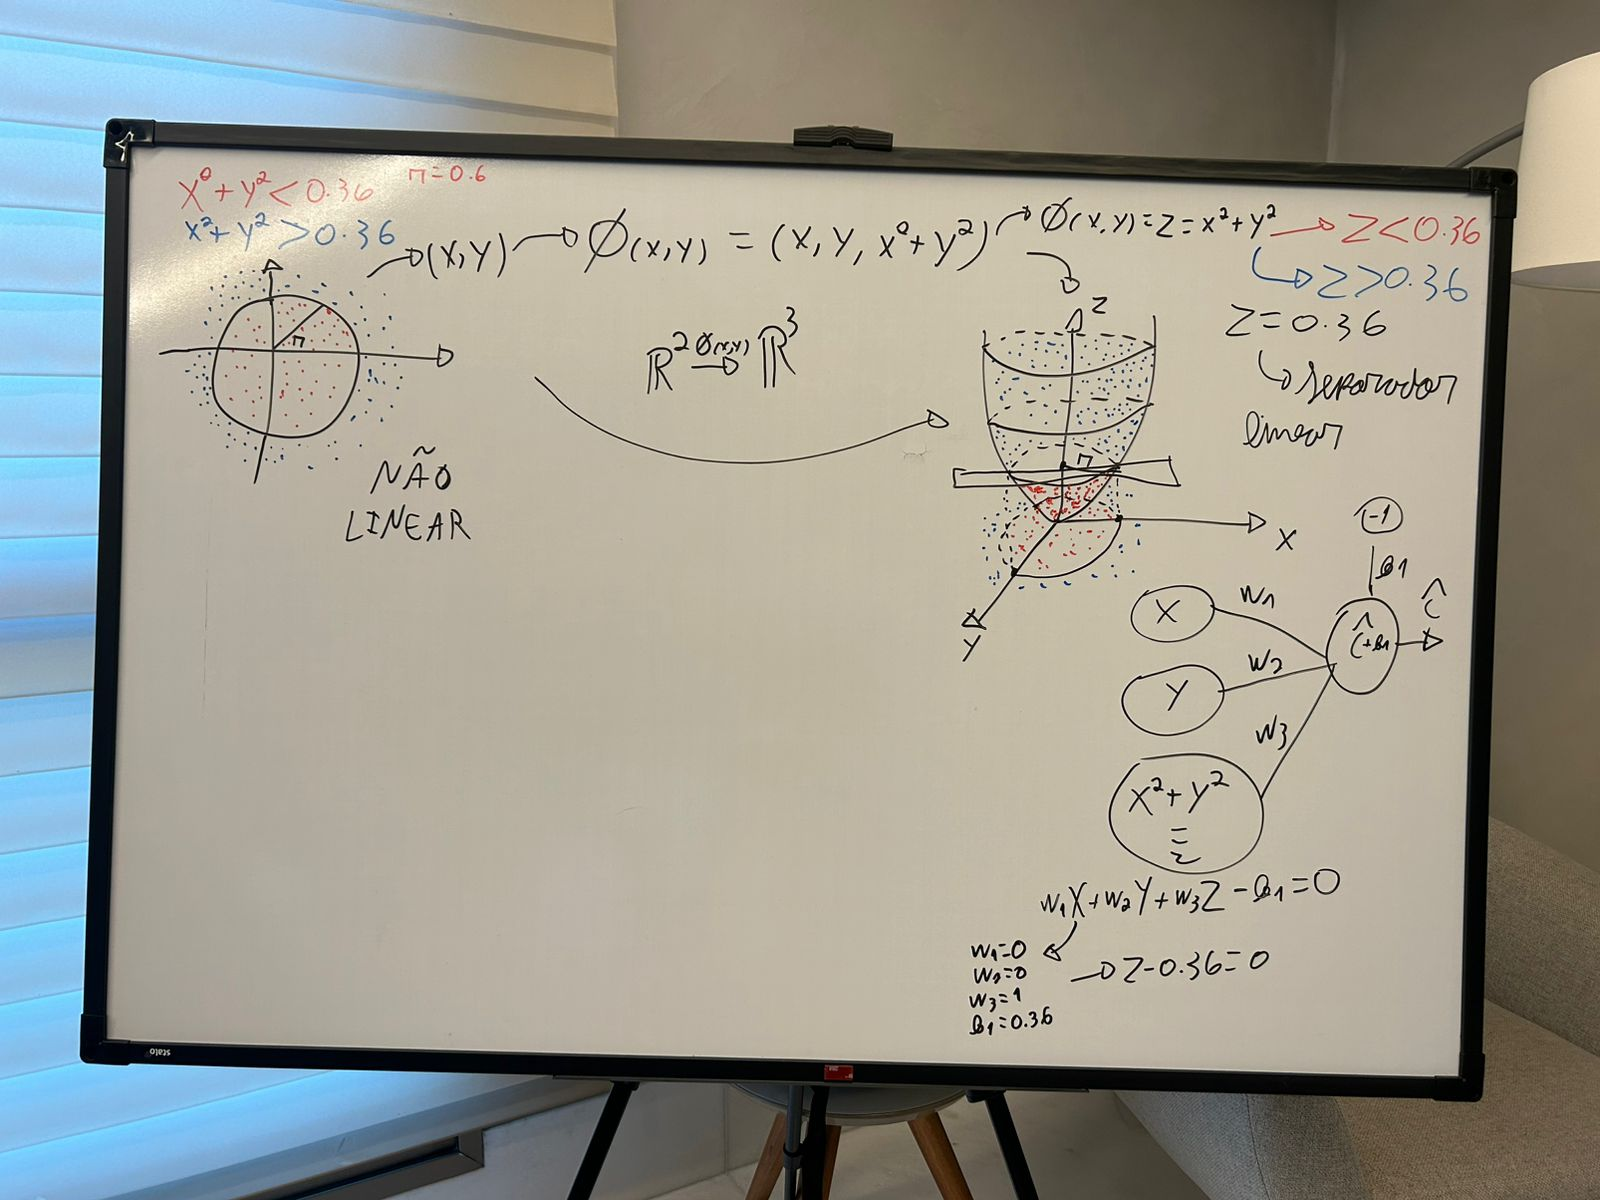 x² + y² < 0.36 r = 0.6
x² + y² > 0.36
(x, y) → Ø(x, y) = (x, y, x² + y²) → Ø(x, y) = z = x² + y² → z < 0.36
↳ z > 0.36
z = 0.36
↳ separador
linear
r
NÃO
LINEAR
ℝ² Ø(x,y) → ℝ³
z
r
x
y
-1
b1
x w1
ĉ + b1 → ĉ
y w2
w3
x² + y²
=
z
w1x + w2y + w3z - b1 = 0
w1 = 0
w2 = 0 → z - 0.36 = 0
w3 = 1
b1 = 0.36
stato